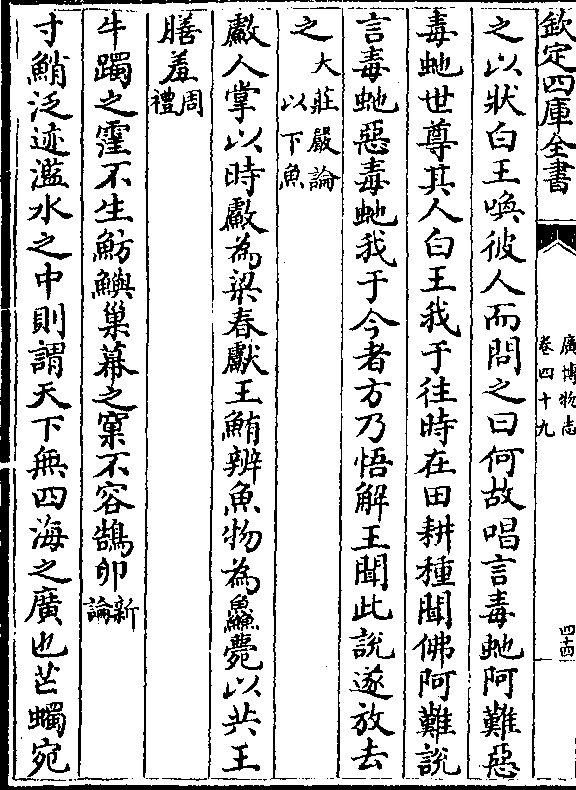 欽定四庫全書
廣博物志
卷四十九
四十四
之以狀白王喚彼人而問之曰何故唱言毒虵阿難惡
毒虵世尊其人白王我于往時在田耕種聞佛阿難說
言毒虵惡毒虵我于今者方乃悟解王聞此說遂放去
之大莊嚴論以下魚
䱷人掌以時䱷為梁春獻王鮪辨魚物為鱻薧以共王
膳羞周禮
牛躅之窪不生魴鱮巢幕之窠不容鵠卵新論
寸鮹泛迹濫水之中則謂天下無四海之廣也芒蠋宛